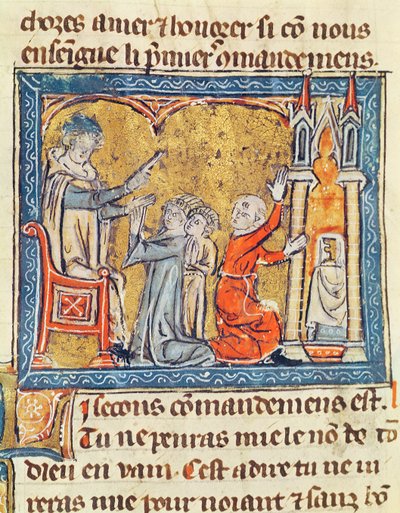 choses amer ⁊ honorer si cō nous
enseigne li pͥmierˢ ꝯmandemens.
LI secons cōmandemens est.
Tu ne penras mie le nō de tō
dieu en vain. Cest adire tu ne iu
reras mie pour noiant ⁊ sanz bō